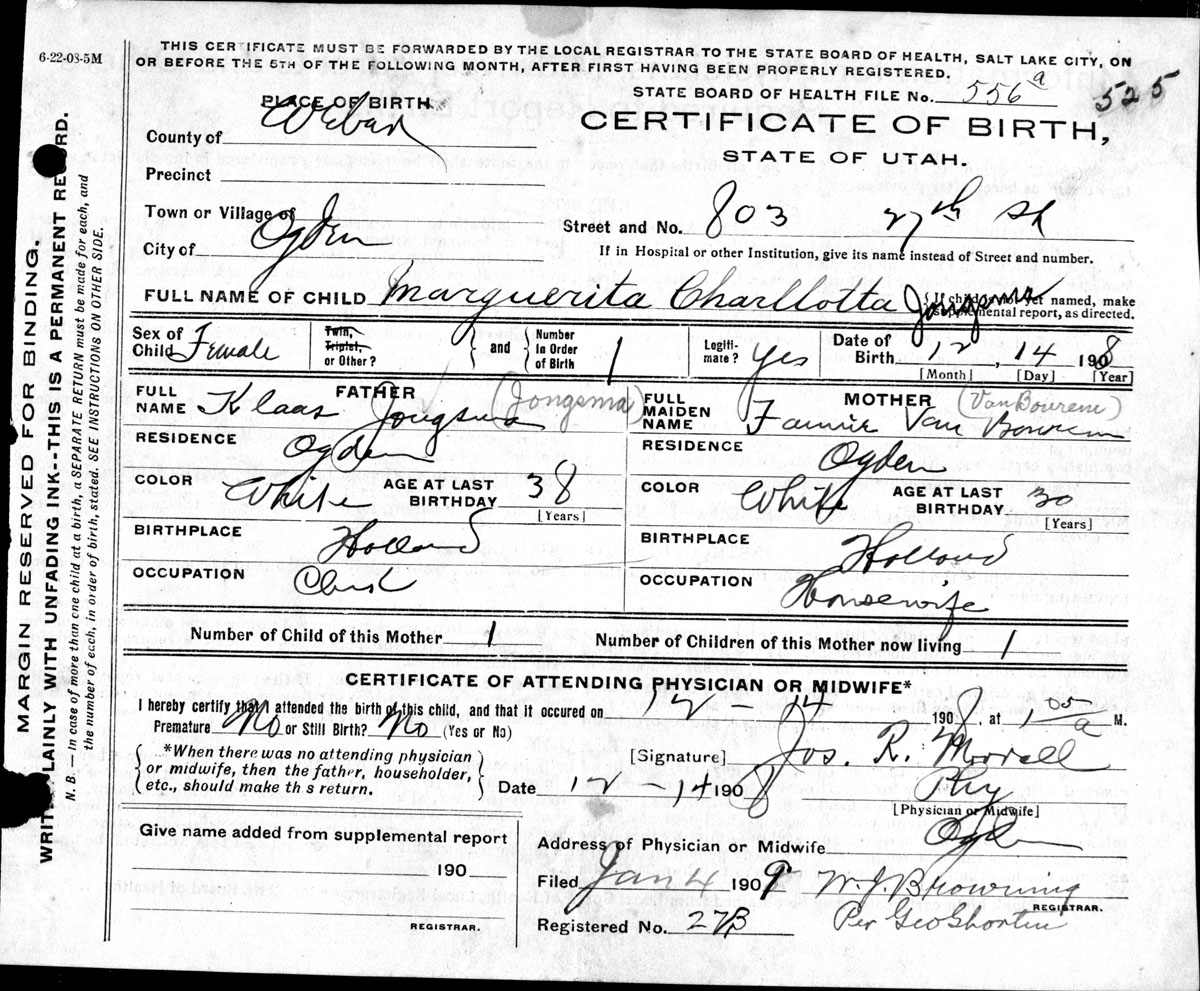 6-22-08-5M
THIS CERTIFICATE MUST BE FORWARDED BY THE LOCAL REGISTRAR TO THE STATE BOARD OF HEALTH, SALT LAKE CITY, ON
OR BEFORE THE 5TH OF THE FOLLOWING MONTH, AFTER FIRST HAVING BEEN PROPERLY REGISTERED.
STATE BOARD OF HEALTH FILE No. 556 a 525
PLACE OF BIRTH
CERTIFICATE OF BIRTH,
STATE OF UTAH.
County of Weber
Precinct
Town or Village of
Street and No. 803 27th St
City of Ogden
If in Hospital or other Institution, give its name instead of Street and number.
FULL NAME OF CHILD Marguerita Charllotta Jongsma
If child is not yet named, make
supplemental report, as directed.
Sex of Child Female
Twin, Triplet, or Other?
and
Number in Order of Birth 1
Legitimate? Yes
Date of Birth 12 14 1908
[Month] [Day] [Year]
FATHER
FULL NAME Klaas Jongsma (Jongsma)
RESIDENCE Ogden
COLOR White AGE AT LAST BIRTHDAY 38
[Years]
BIRTHPLACE Holland
OCCUPATION Clerk
MOTHER (Van Bourem)
FULL MAIDEN NAME Fannie Van Bourem
RESIDENCE Ogden
COLOR White AGE AT LAST BIRTHDAY 30
[Years]
BIRTHPLACE Holland
OCCUPATION Housewife
Number of Child of this Mother 1 Number of Children of this Mother now living 1
CERTIFICATE OF ATTENDING PHYSICIAN OR MIDWIFE*
I hereby certify that I attended the birth of this child, and that it occured on 12-14 1908, at 1 05 a M.
Premature No or Still Birth? No (Yes or No)
*When there was no attending physician
or midwife, then the father, householder,
etc., should make th s return.
[Signature] Jos. R. Morrell
Date 12-14 1908 Phy
[Physician or Midwife]
Give name added from supplemental report
190
REGISTRAR.
Address of Physician or Midwife Ogden
Filed Jan 4 1909 W. J. Browning
REGISTRAR.
Registered No. 273 Per Geo Shorten
MARGIN RESERVED FOR BINDING.
WRITE PLAINLY WITH UNFADING INK--THIS IS A PERMANENT RECORD.
N. B.—In case of more than one child at a birth, a SEPARATE RETURN must be made for each, and
the number of each, in order of birth, stated. SEE INSTRUCTIONS ON OTHER SIDE.